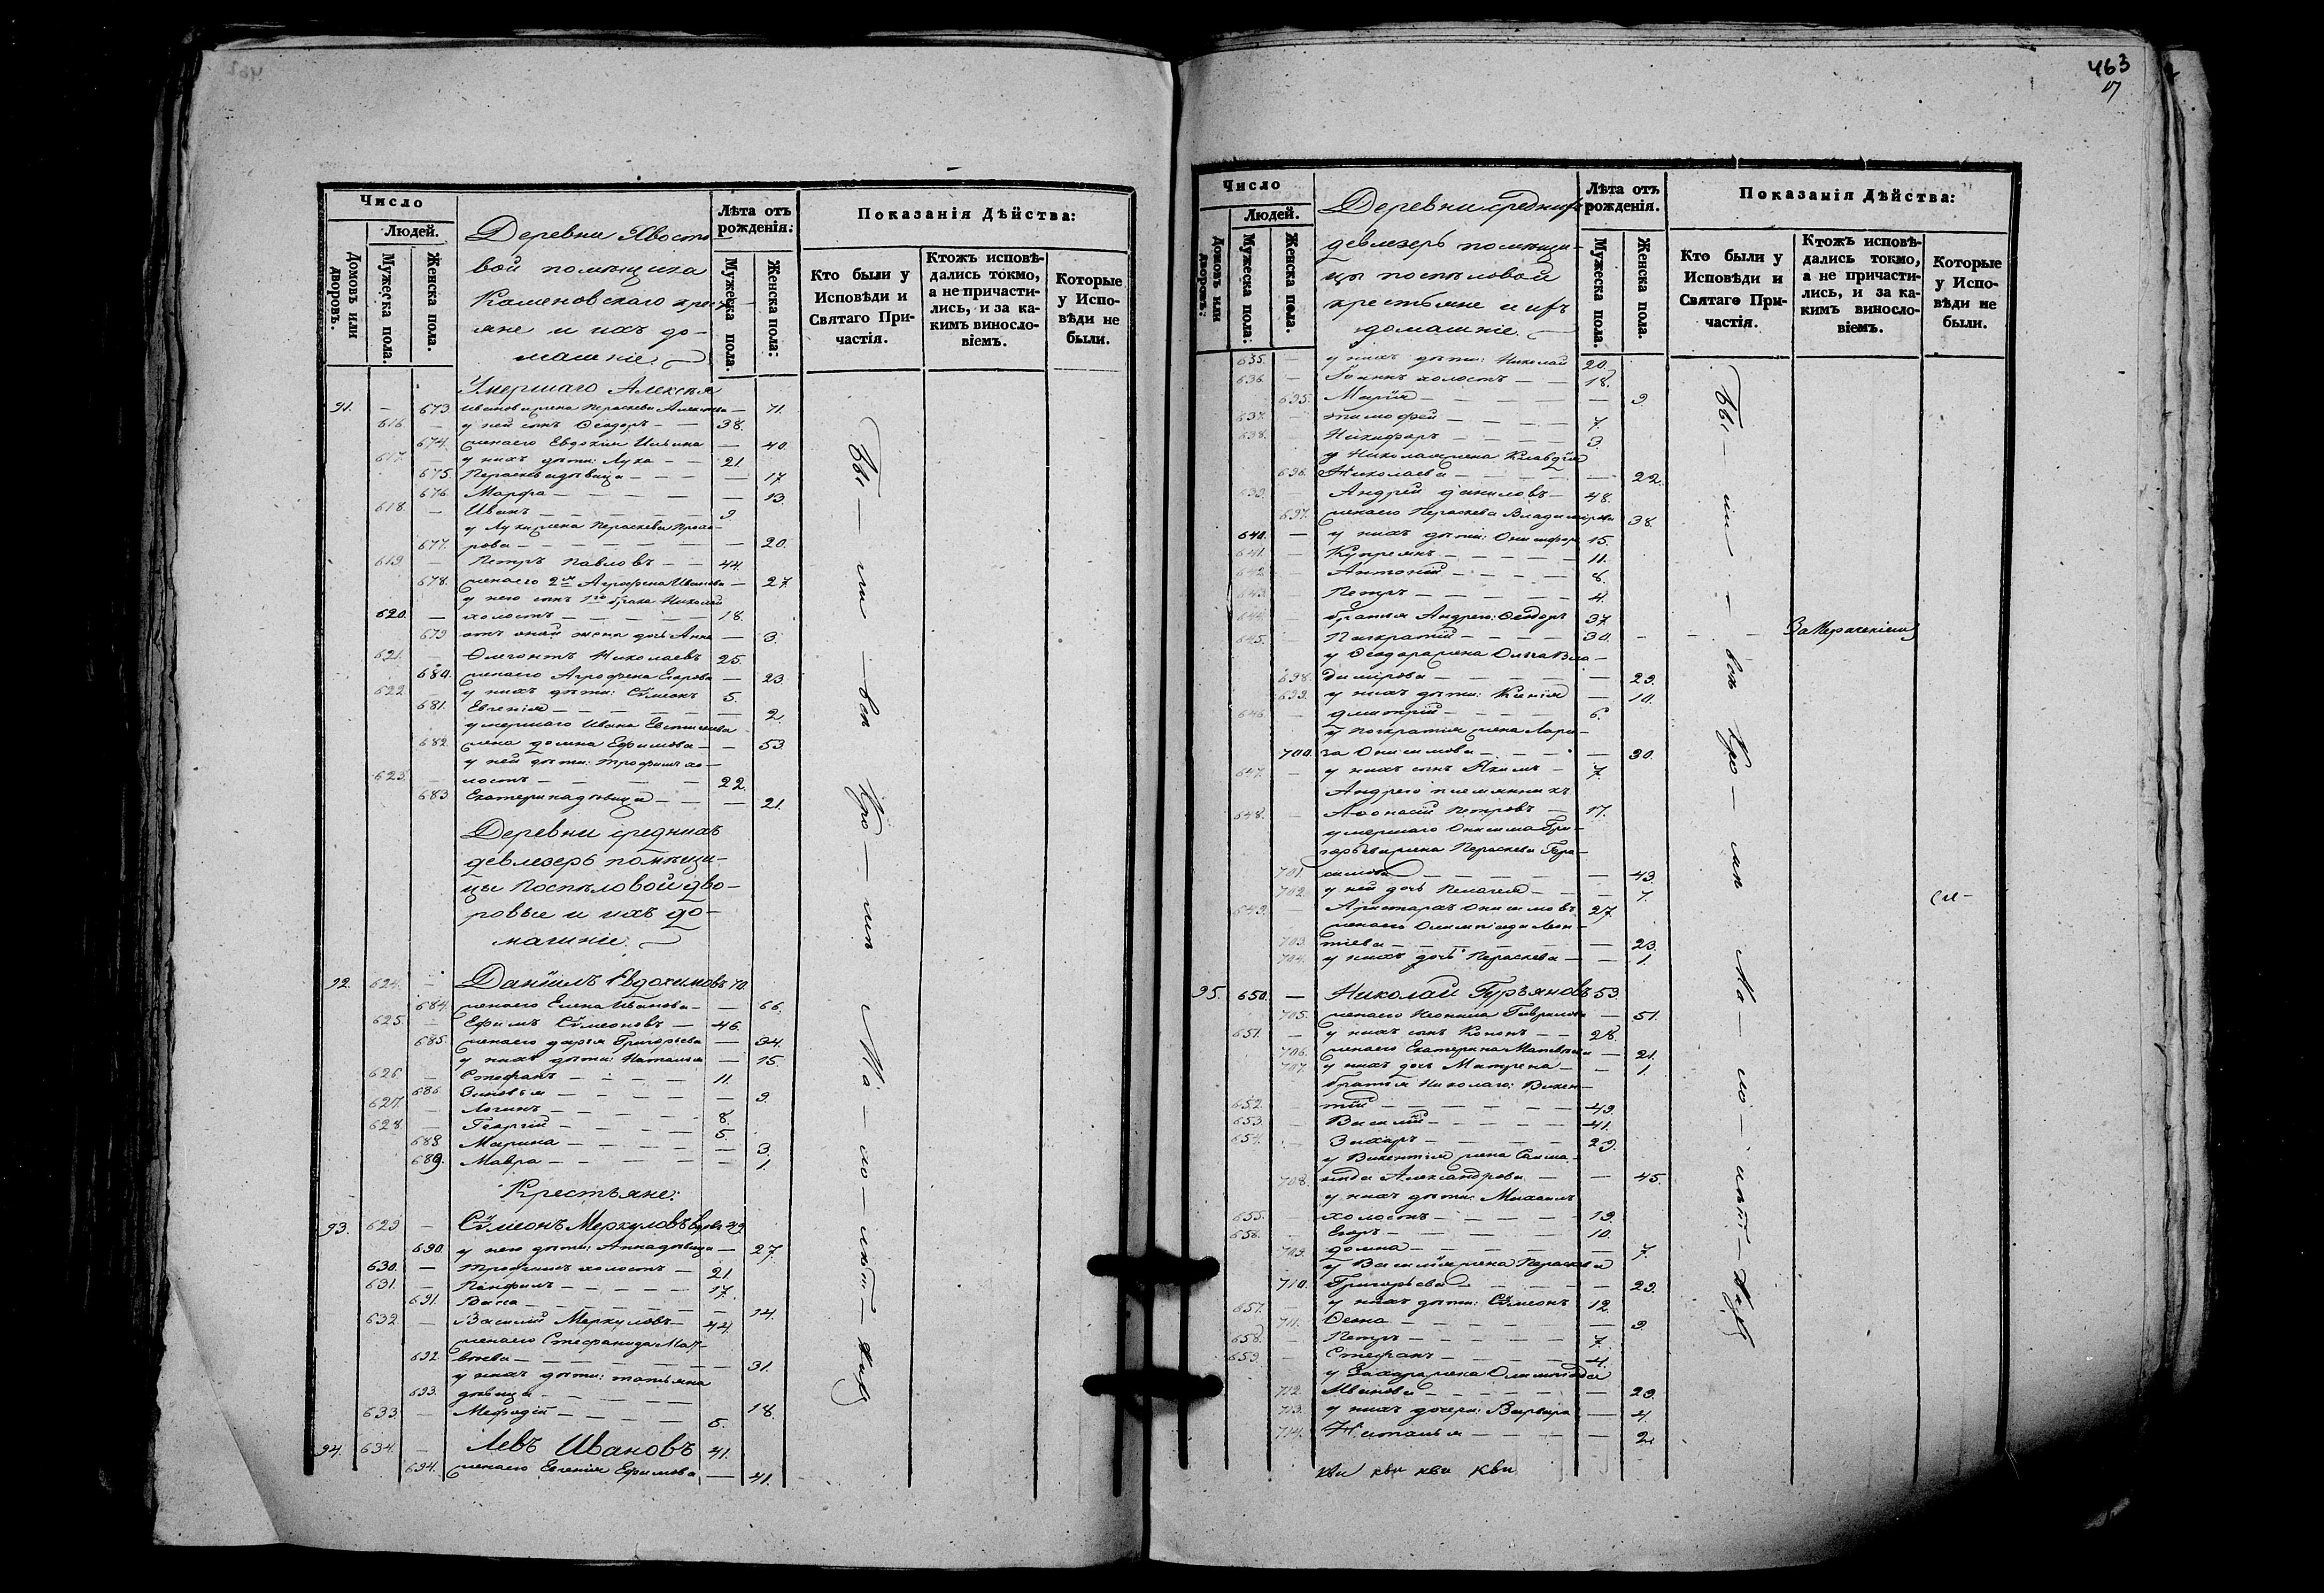 Число
Людей.
Домовъ или дворовъ.
Мужеска пола.
Женска пола.
Деревни Хвосто-
вой помѣщика
Каменовскаго кресть-
яне и ихъ до-
машніе.
Лѣта отъ рожденія:
Мужеска пола.
Женска пола:
Показанія Дѣйства:
Кто были у Исповѣди и Святаго Причастія.
Ктожъ исповѣдались токмо, а не причастились, и за какимъ винословіемъ.
Которые у Исповѣди не были.
Умершаго Алексѣя
91. — 673 Иванова жена Параскева Алексѣева — 71.
616 — у ней сынъ Ѳеодоръ — 38.
674. жена его Евдокия Ильина — 40.
617. — у нихъ дѣти: Лука — 21.
675. Параскева дѣвица — 17
676. Марфа — 13
618. — Иванъ — 9
у Луки жена Параскева Прохо-
677. рова — 20.
619 — Петръ Павловъ — 44.
678. жена его 2я Агрофена Иванова — 27
у него сынъ 1го брака Николай
620. — холостъ — 18.
679 отъ оной жена дочь Анна — 3.
621. — Флегонтъ Николаевъ 25.
680. жена его Агрофена Егорова — 23.
622 — у нихъ дѣти: Сѵмеонъ 5.
681. Евгенія — 2.
умершаго Ивана Евстигнѣева
682. жена Домна Ефимова — 53.
у ней дѣти: Трофимъ хо-
623. — лостъ — 22.
683 Екатерина дѣвица — 21.
Деревни среднихъ
девлезеръ помѣщи-
цы Поспѣловой дво-
ровые и ихъ до-
машніе.
92. 624. — Даніилъ Евдокимовъ 70.
684. жена его Елена Иванова — 66.
625. — Ефимъ Сѵмеоновъ — 46.
685. жена его Дарья Григорьева — 34.
у нихъ дѣти: Наталья — 15.
626 — Стефанъ — 11.
686 Зиновья — 9.
627. — Логинъ — 8.
628. — Георгій — 5.
688 Марина — 3.
689. Мавра — 1.
Крестьяне:
93. 629 — Сѵмеонъ Меркуловъ вдовъ 49
690. у него дѣти: Анна дѣвица — 27.
630. — Трофимъ холостъ — 21
631. — Панфилъ — 17.
691. Васа — 14.
632 — Василий Меркуловъ — 44.
жена его Стефанида Мат-
692 вѣева — 31.
у нихъ дѣти: Татьяна
693. дѣвица — 18.
633. — Мефодій — 5.
94. 634. — Левъ Ивановъ 41.
694. жена его Евгенія Ефимова — 41.
Бы — ли — въ
463
17
Число
Людей.
Домовъ или дворовъ:
Мужеска пола:
Женска пола.
Деревни среднихъ
девлезеръ помѣщи-
цы Поспѣловой
крестьяне и ихъ
домашніе.
Лѣта отъ рожденія.
Мужеска пола.
Женска пола.
Показанія Дѣйства:
Кто были у Исповѣди и Святаго Причастія.
Ктожъ исповѣдались токмо, а не причастились, и за какимъ винословіемъ.
Которые у Исповѣди не были.
635. — у нихъ дѣти: Николай 20.
636. — Іоаннъ холостъ — 18.
695. Марія — 9.
637. — Тимофей — 7.
638. — Никифоръ — 3
у Николая жена Клавдія
696. Николаева — 22.
639. — Андрей Даниловъ — 48.
697. жена его Параскева Владимірова 38.
640. — у нихъ дѣти: Онисифоръ 15.
641. — Купреянъ — 11.
642. — Антоній — 8.
643. — Петръ — 4.
644. — братья Андрею: Ѳеодоръ 37.
645. — Панкратій — 30. — За Мераченіемъ
у Ѳеодора жена Ольга Вла-
698. димірова — 29.
699. у нихъ дѣти: Ксенія — 10.
646. — Дмитрій — 6.
у Панкратія жена Лари-
700. за Онисимова — 30.
647. — у нихъ сынъ Якимъ — 7.
Андрею племянникъ
648. — Афонасій Петровъ — 17.
умершаго Онисима Гри-
горьева жена Параскева Гера-
701 симова — 43.
702. у ней дочь Пелагея — 7.
649. — Аристархъ Онисимовъ 27.
жена его Олимпіада Леон-
703. тіева — 23.
704. у нихъ дочь Параскева — 1.
95. 650. — Николай Гурьяновъ 53.
705. жена его Неонила Гаврилова — 51.
651. — у нихъ сынъ Кононъ — 28.
706. жена его Екатерина Матвѣева — 21.
707. у нихъ дочь Матрена — 1.
братья Николаю: Викен-
652. — тій — 49.
653. — Василій — 41.
654. — Захаръ — 29.
у Викентія жена Саломо-
708. нида Александрова — 45.
у нихъ дѣти: Михаилъ
655. холостъ — 19.
656. — Егоръ — 10.
709. Домна — 7.
у Василія жена Параскева
710. Григорьева — 29.
657. — у нихъ дѣти: Сѵмеонъ 12.
711. Ѳекла — 9.
658. — Петръ — 7.
659. — Стефанъ — 4.
у Захара жена Олимпіада
712. Иванова — 29.
713. у нихъ дочери: Варвара — 4.
714. Наталья — 2.
Бы — ли — въ